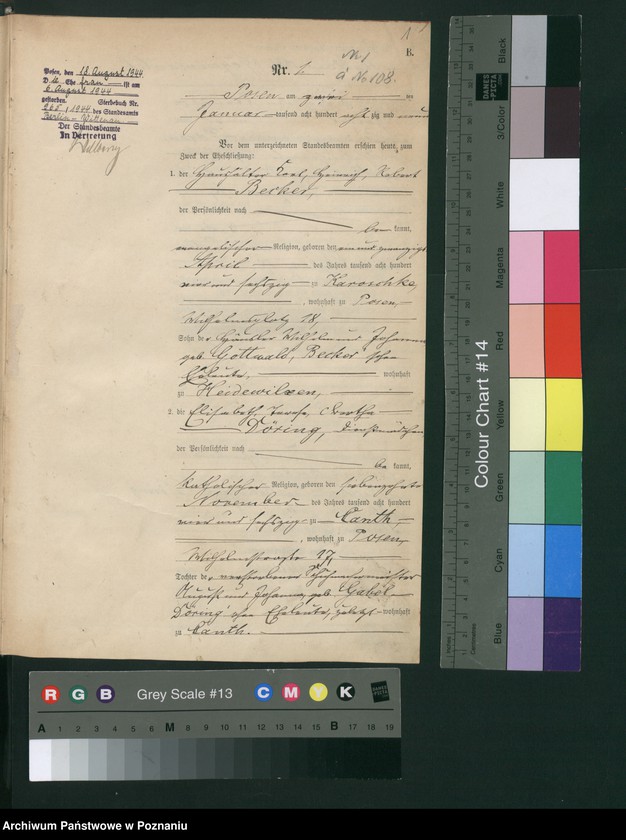 1
B.
Nr. 1.
No 108.
Posen, den 18. August 1944
D. Ehefrau ist am
6. August 1944
gestorben. Sterbebuch Nr.
1944 des Standesamts
Berlin-
Der Standesbeamte
In Vertretung
Posen am zwei ten
Januar tausend acht hundert acht zig und neun
Vor dem unterzeichneten Standesbeamten erschien heute, zum
Zweck der Eheschließung:
1. der Haushälter Karl, Heinrich, Robert
Becker,
der Persönlichkeit nach
be kannt,
evangelischer Religion, geboren den ein und zwanzigsten
April des Jahres tausend acht hundert
vier und sechszig zu Karoschke,
, wohnhaft zu Posen,
Wilhelmsplatz 18,
Sohn der Häusler Wilhelm und Johanna
geb. Gottwald, Becker'schen
Eheleute, wohnhaft
zu Heidewilxen,
2. die Elisabeth, Teresa, Bertha
Döring, Dienstmädchen
der Persönlichkeit nach
be kannt,
katholischer Religion, geboren den siebenzehnten
November des Jahres tausend acht hundert
vier und sechszig zu Canth,
, wohnhaft zu Posen,
Wilhelmstraße 17,
Tochter der verstorbenen
August und Johanna, geb. Gabel
Döring'schen Eheleute, zuletzt wohnhaft
zu Canth.
R G B Grey Scale #13 C M Y K DANES PICTA
A 1 2 3 4 5 6 M 8 9 10 11 12 13 14 15 B 17 18 19
Colour Chart #14
Black
3/Color
White
Magenta
Red
Yellow
Green
Cyan
Blue
DANES PICTA
Inches
Centimetres
Archiwum Państwowe w Poznaniu